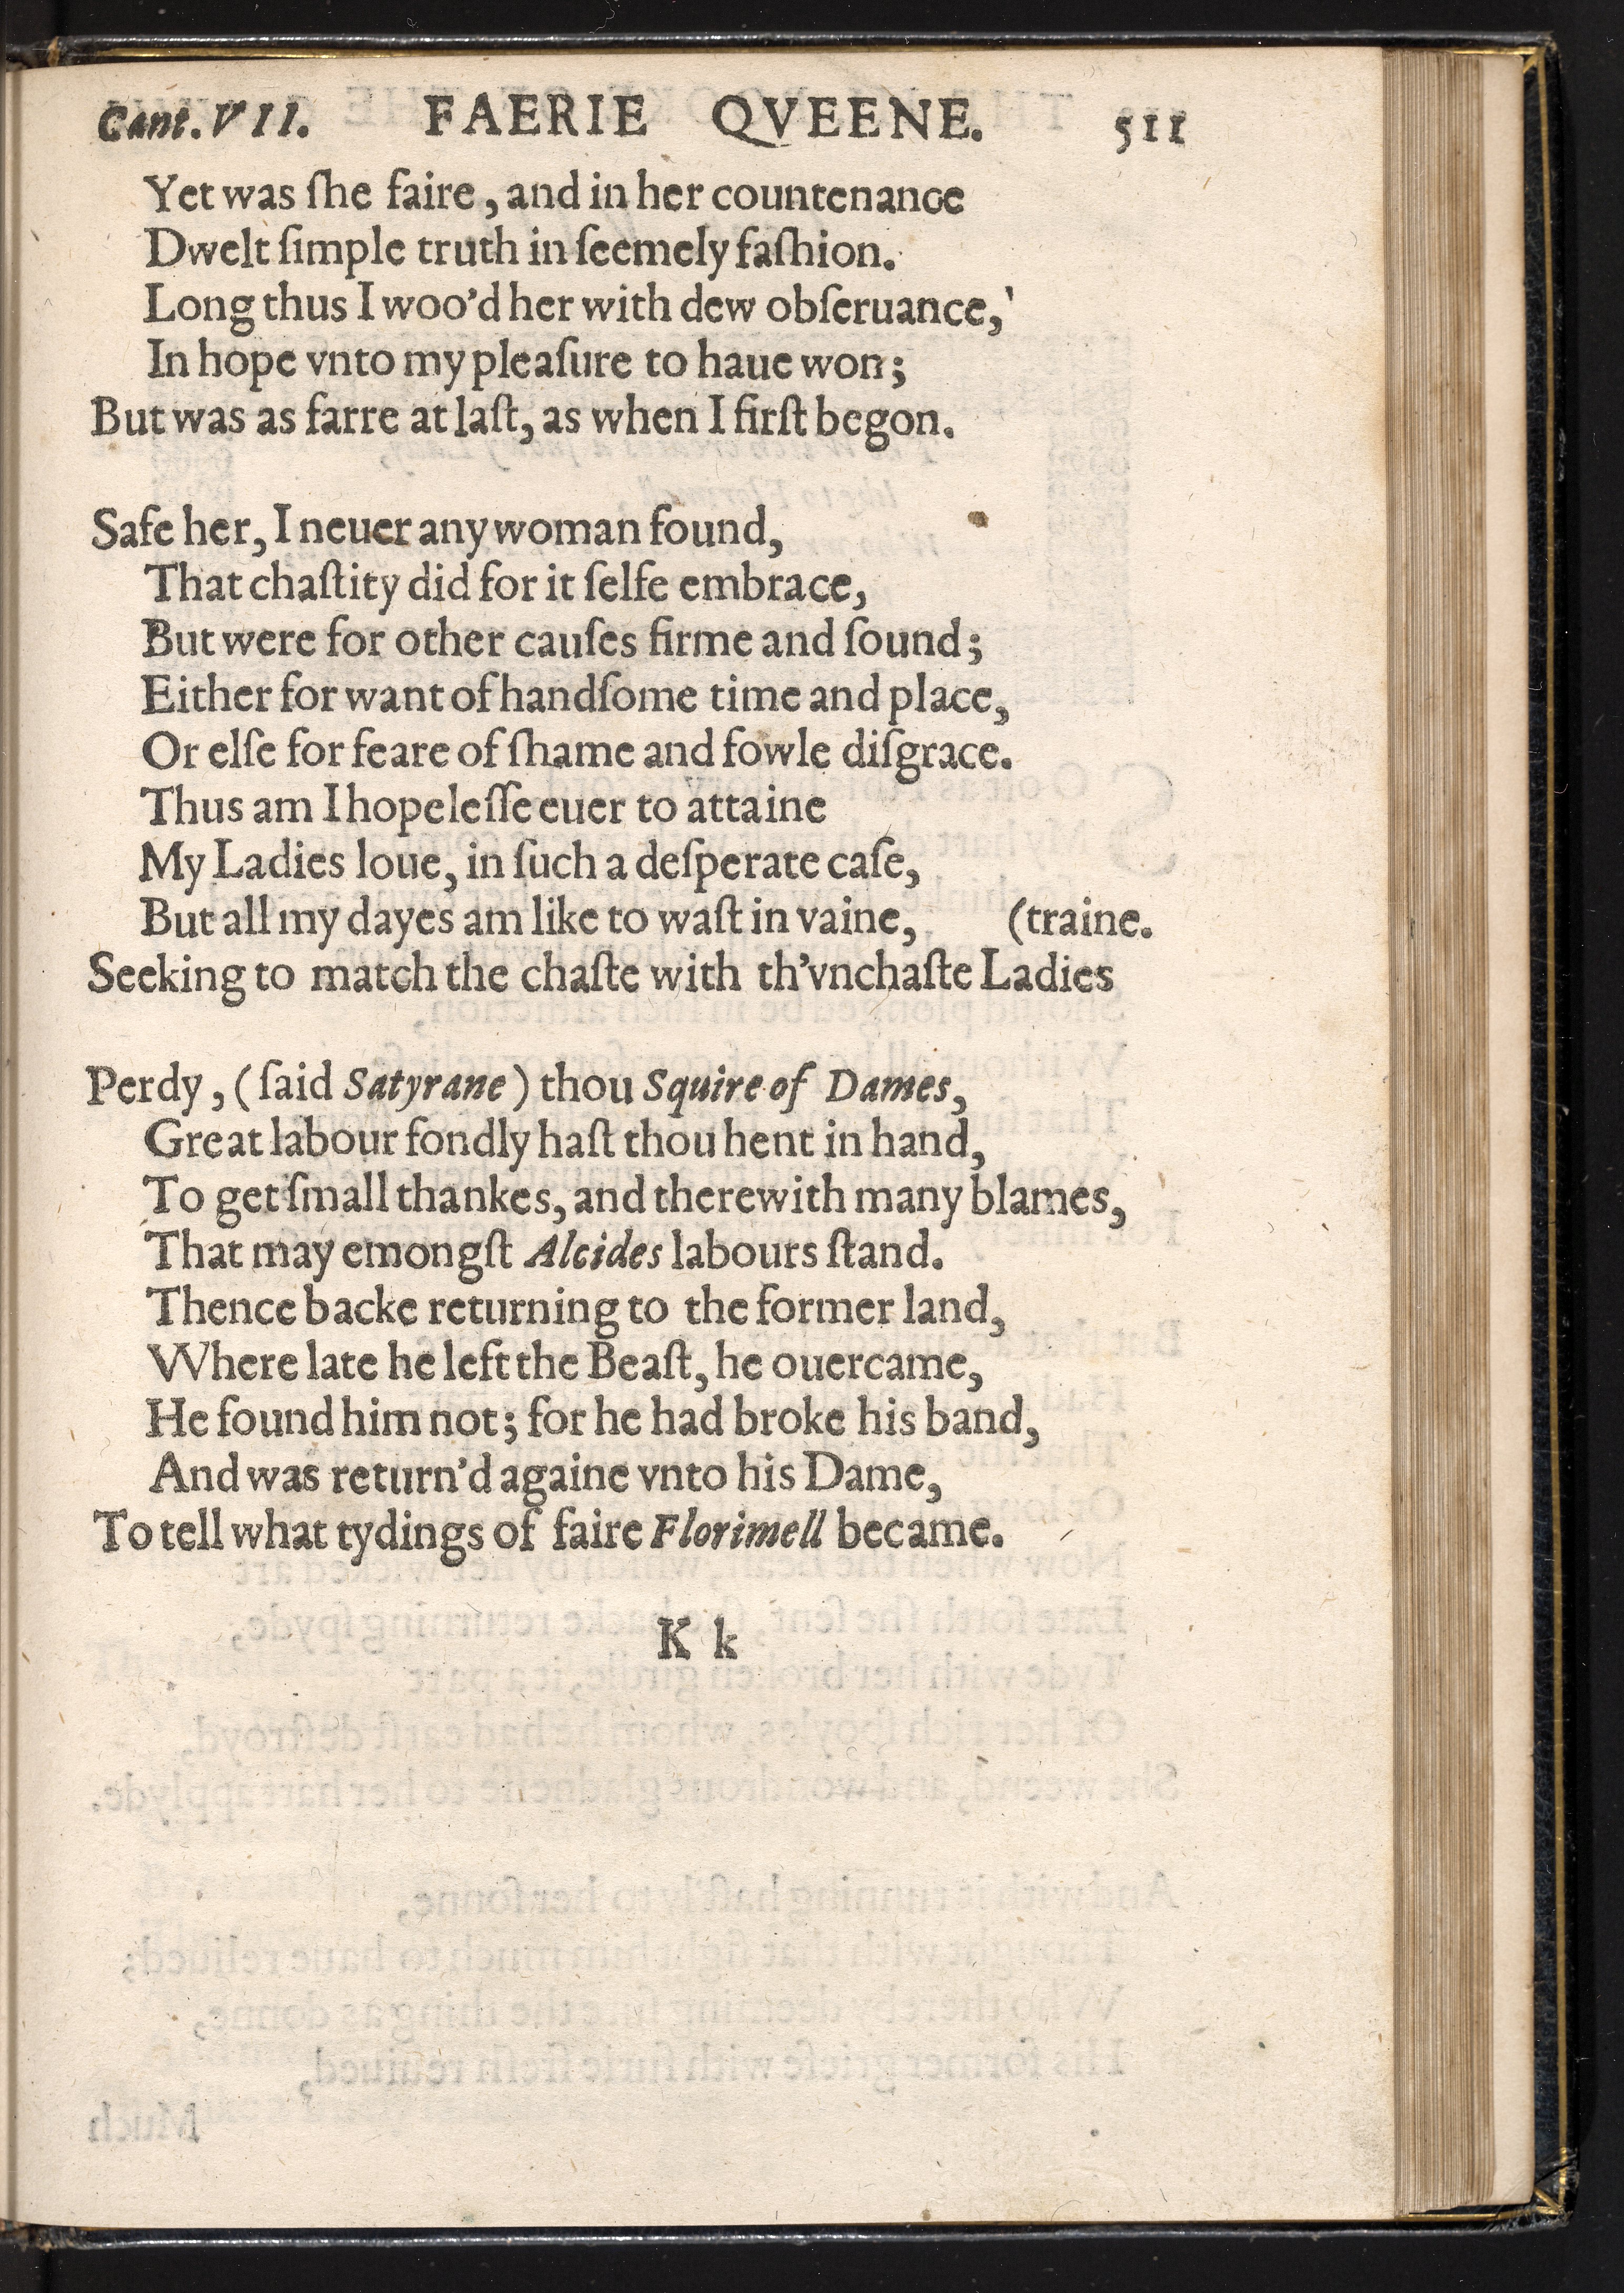 Cant. VII. FAERIE QVEENE. 511
Yet was ſhe faire, and in her countenance
Dwelt ſimple truth in ſeemely faſhion.
Long thus I woo'd her with dew obſeruance,
In hope vnto my pleaſure to haue won;
But was as farre at laſt, as when I firſt begon.
Safe her, I neuer any woman found,
That chaſtity did for it ſelfe embrace,
But were for other cauſes firme and ſound;
Either for want of handſome time and place,
Or elſe for feare of ſhame and fowle diſgrace.
Thus am I hopeleſſe euer to attaine
My Ladies loue, in ſuch a deſperate caſe,
But all my dayes am like to waſt in vaine, (traine.
Seeking to match the chaſte with th'vnchaſte Ladies
Perdy, (ſaid Satyrane) thou Squire of Dames,
Great labour fondly haſt thou hent in hand,
To get ſmall thankes, and therewith many blames,
That may emongſt Alcides labours ſtand.
Thence backe returning to the former land,
Where late he left the Beaſt, he ouercame,
He found him not; for he had broke his band,
And was return'd againe vnto his Dame,
To tell what tydings of faire Florimell became.
K k